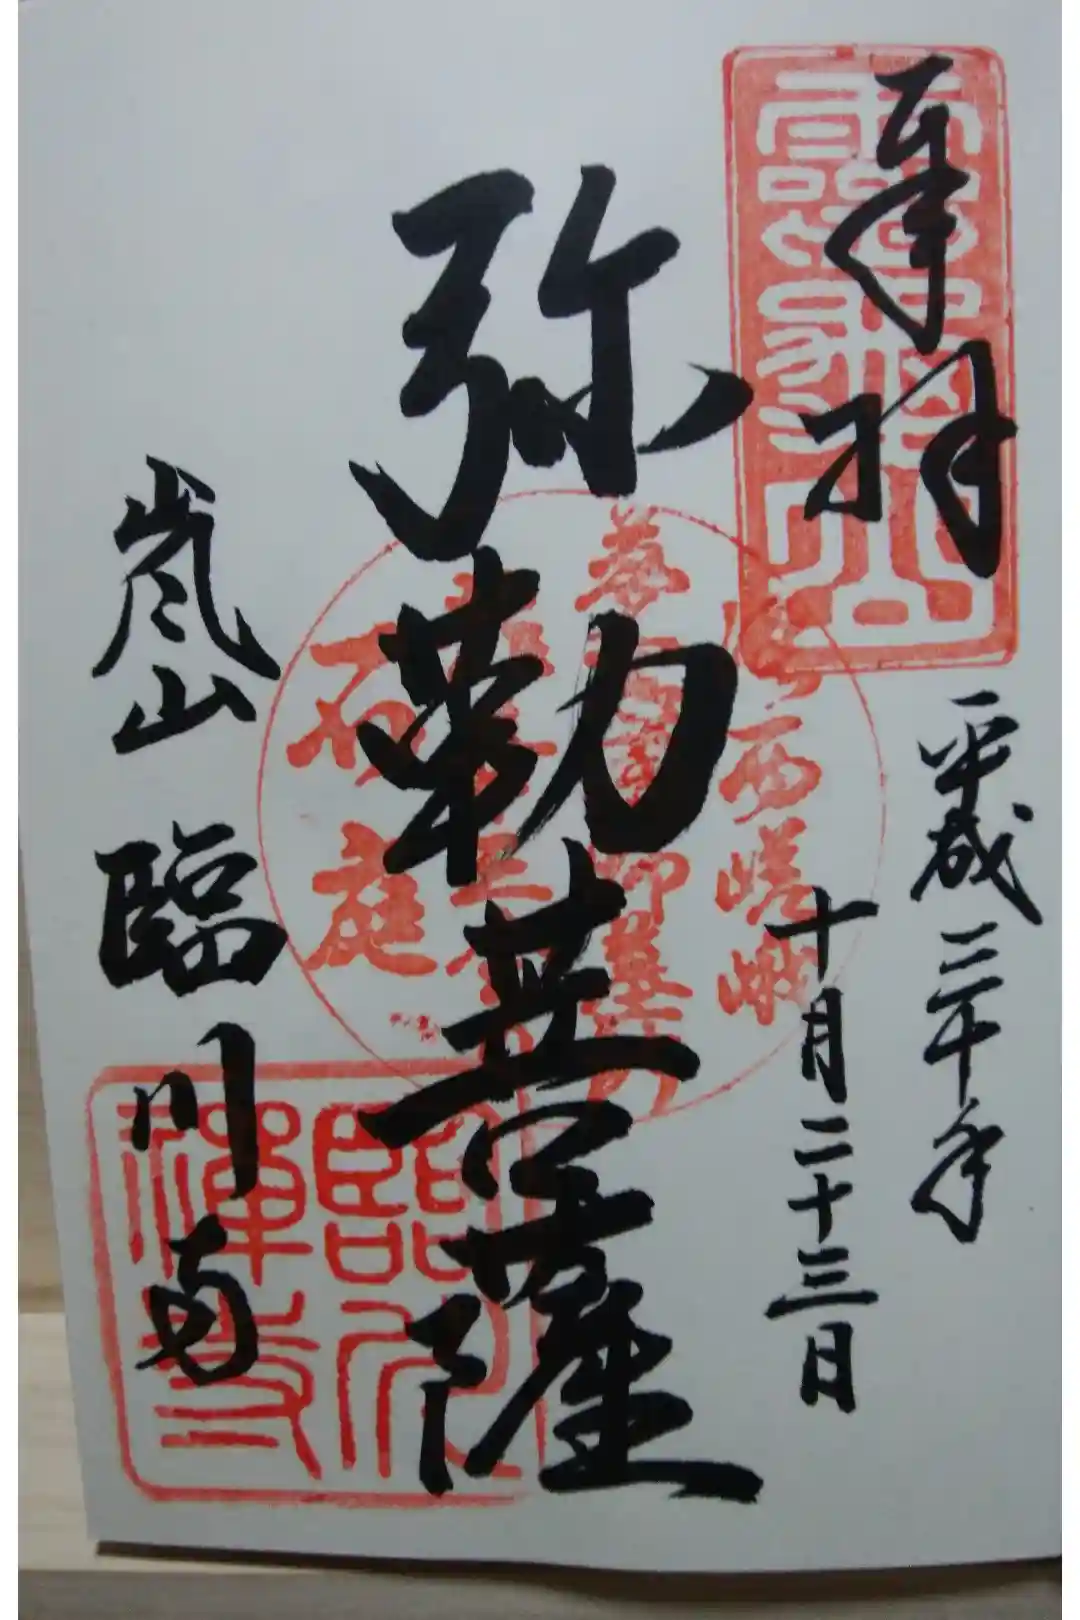 奉拝
霊亀山
平成三十年
十月二十三日
弥勒菩薩
西嵯峨
石庭
嵐山 臨川寺
臨川
禪寺